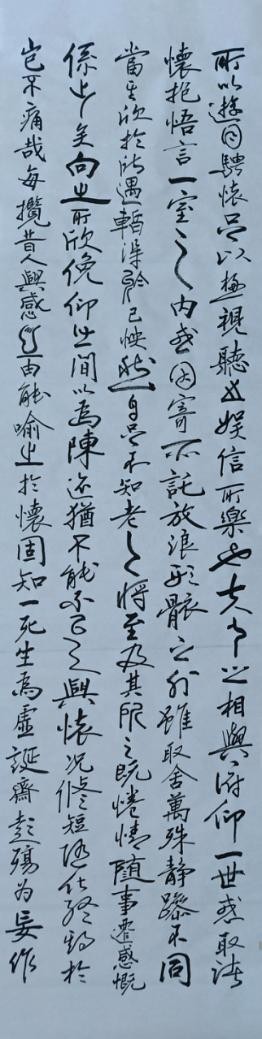 所以遊目騁懷足以極視聽之娱信可樂也夫人之相與俯仰一世或取諸
懷抱悟言一室之内或因寄所託放浪形骸之外雖取舍萬殊静躁不同
當其欣於所遇暫得於己怏然自足不知老之將至及其所之既惓情随事遷感慨
係之矣向之所欣俛仰之間以為陳迹猶不能不以之興懷况修短随化終期於
豈不痛哉每攬昔人興感之由能喻之於懷固知一死生為虛誕齊彭殤为妄作